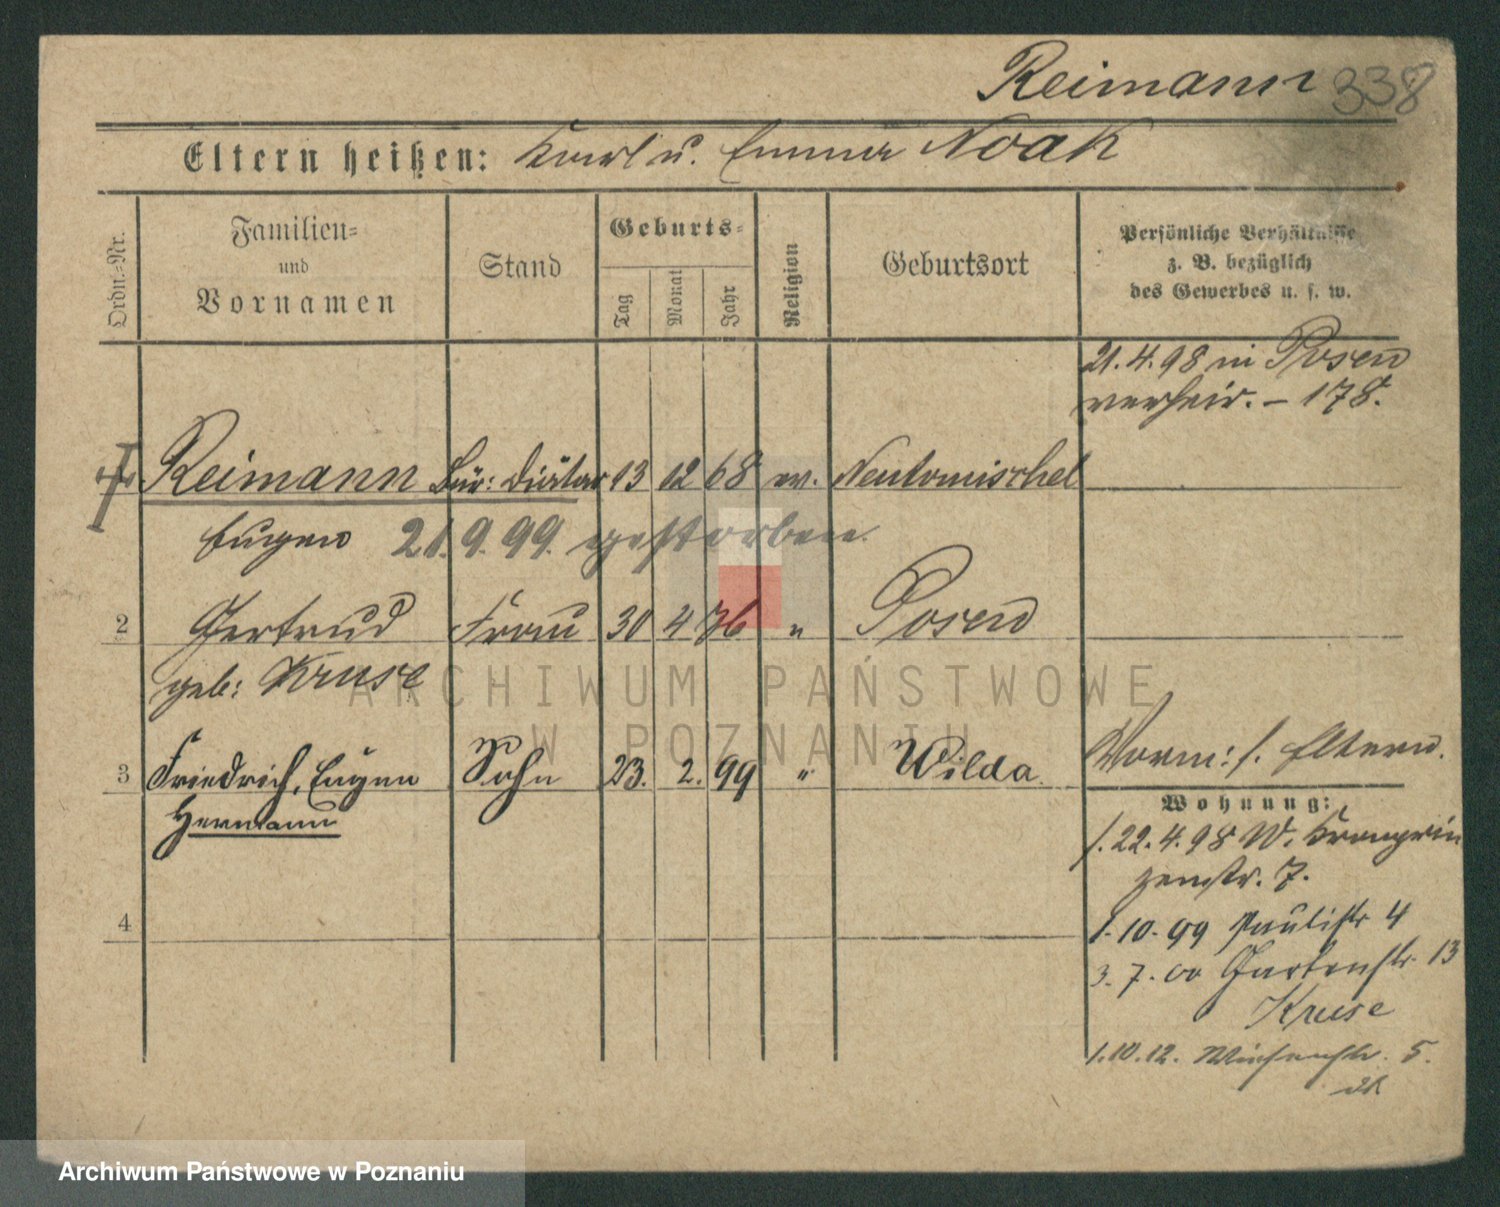 Reimann 338
Eltern heißen: Karl u. Emma Noak
Ordn.-Nr.
Familien-
und
Vornamen
Stand
Geburts-
Tag
Monat
Jahr
Religion
Geburtsort
Persönliche Verhältnisse
z. B. bezüglich
des Gewerbes u. s. w.
21.4.98 in Posen
verheir. – 178.
Reimann Bür: Diätar 13 12 68 ev. Neutomischel
Eugen 21.9.99. gestorben.
2 Gertrud Frau 30 4 76 " Posen
geb: Kruse
3 Friedrich, Eugen Sohn 23. 2. 99 " Wilda.
Hermann
Vorm: s. Eltern.
Wohnung:
1.22.4.98 W. Kronprin
zenstr. 7.
4
1.10.99 Paulistr 4
3.7.00 Gartenstr. 13
Kruse
1.10.12. Wiesenstr. 5.
ARCHIWUM PAŃSTWOWE
W POZNANIU
Archiwum Państwowe w Poznaniu